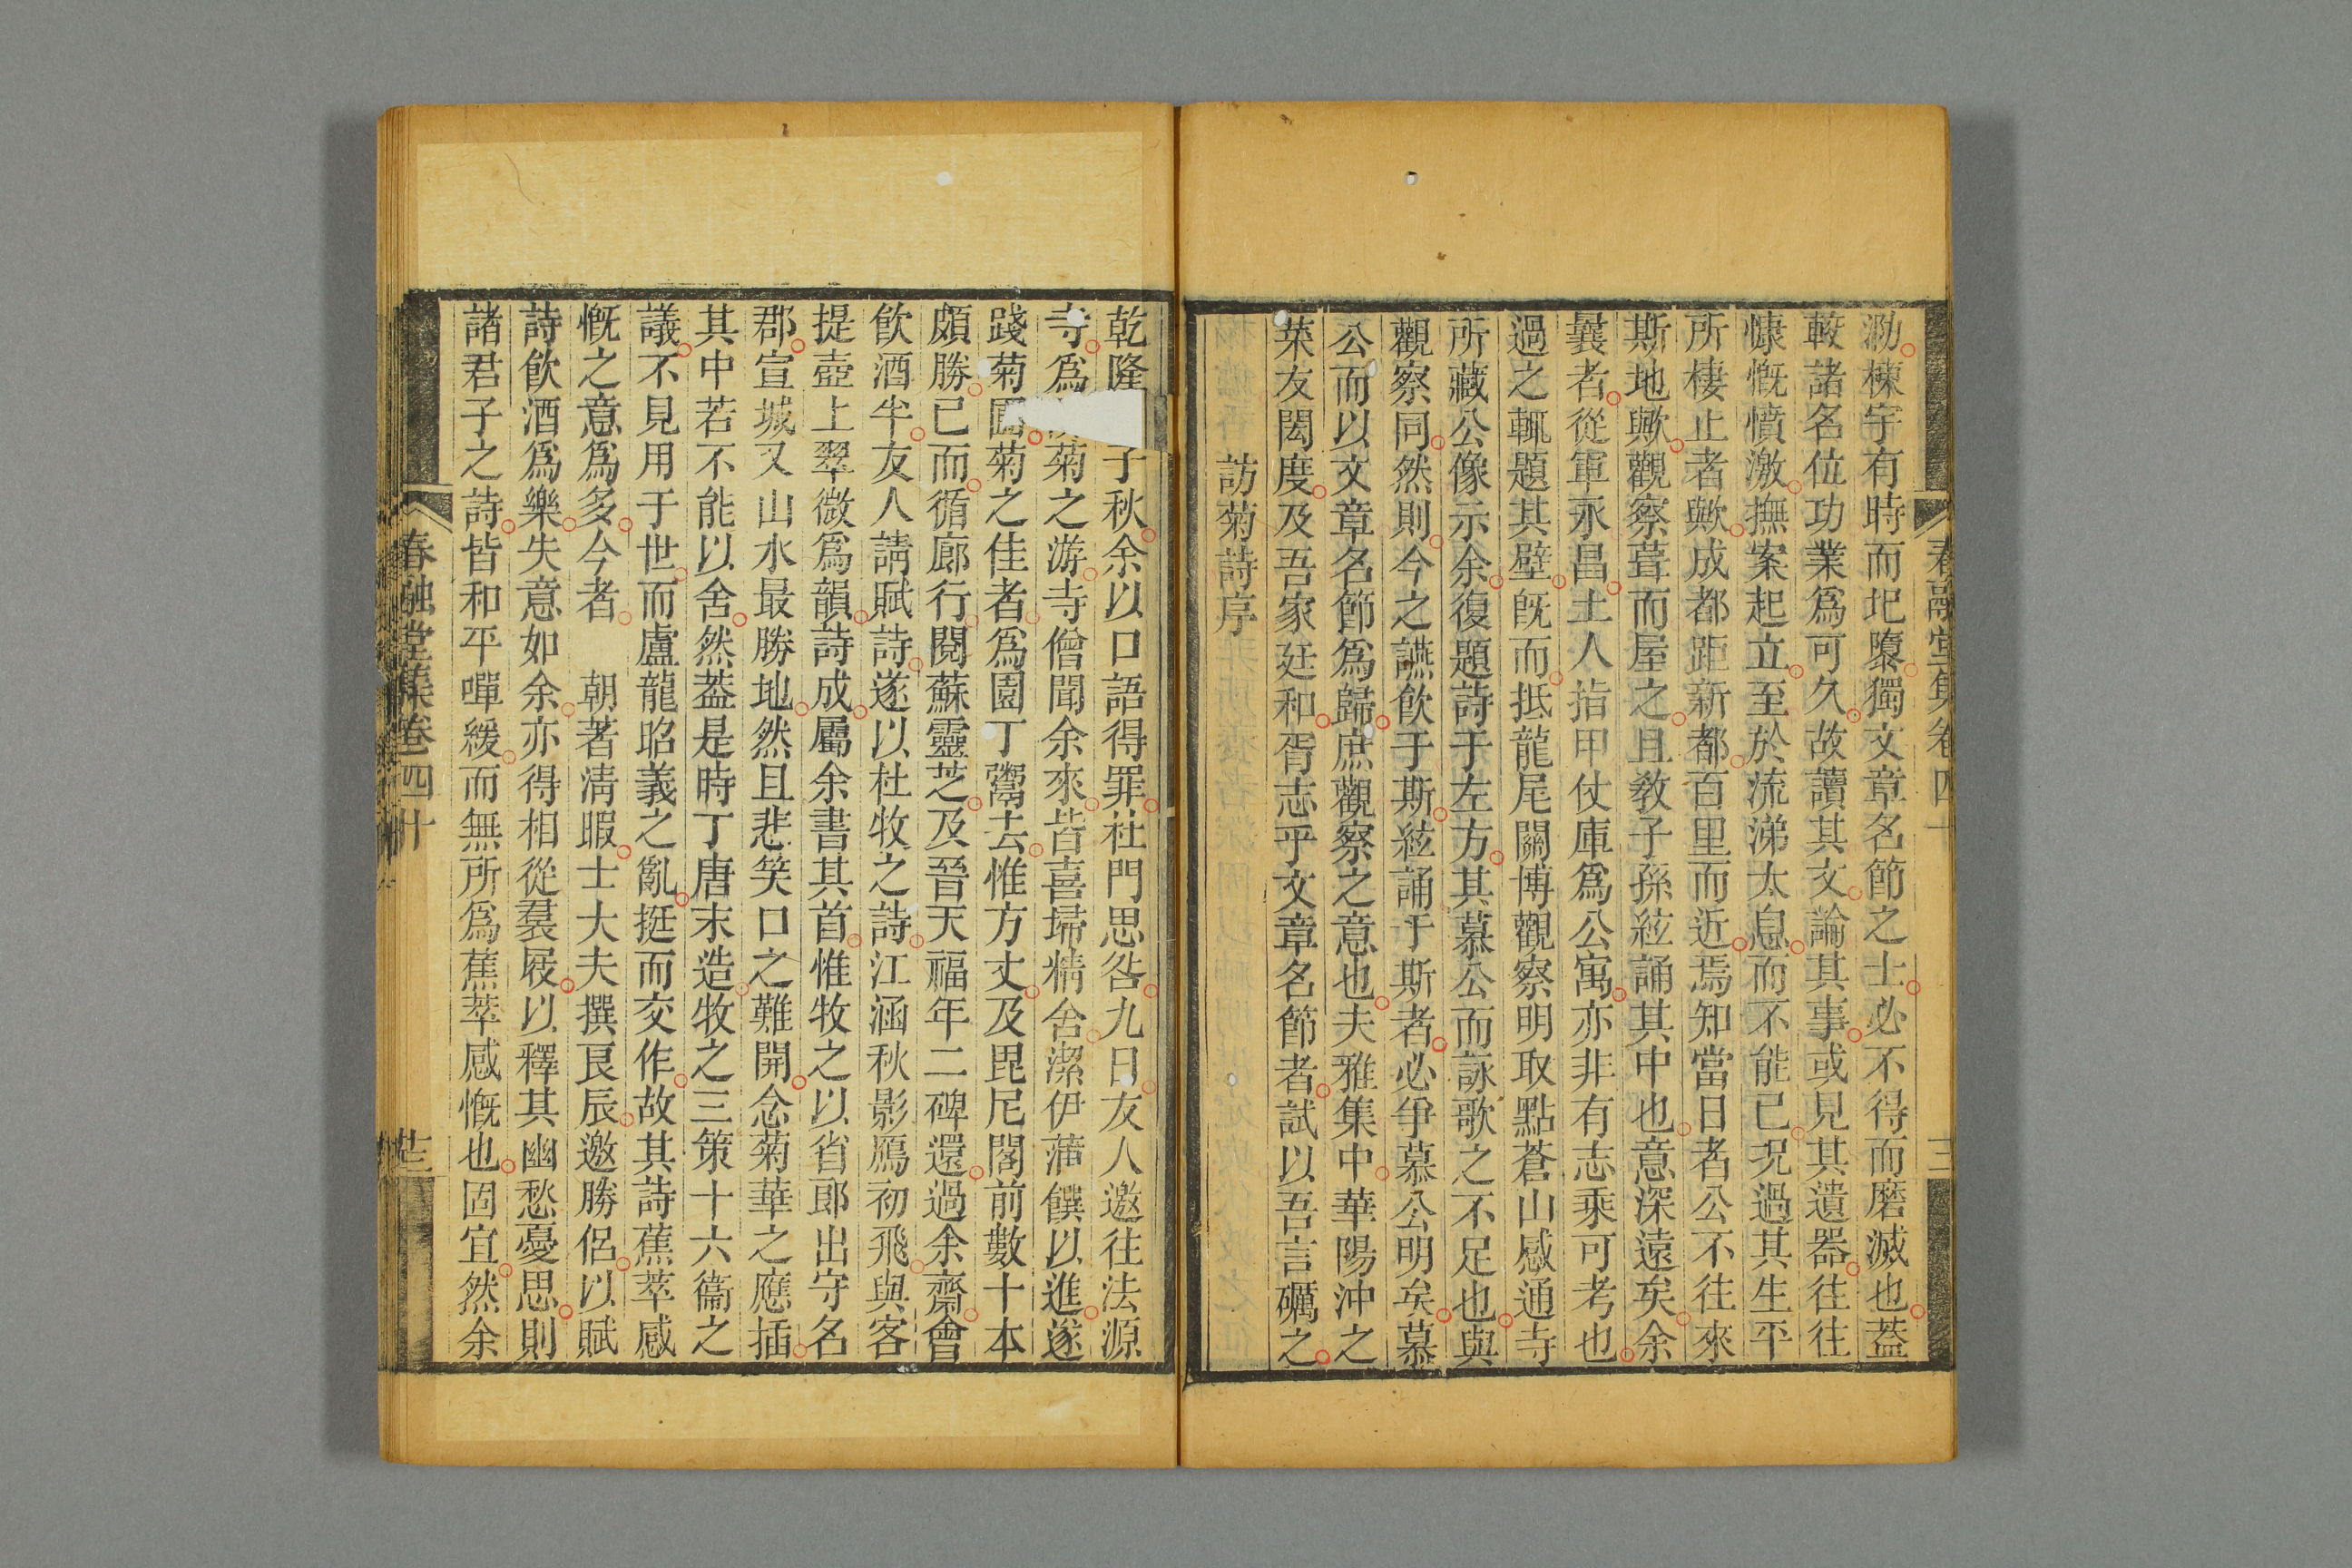 泐棟宇有時而圮隳獨文章名節之士必不得而磨滅也蓋
較諸名位功業爲可久故讀其文論其事或見其遺器往往
慷慨憤激撫案起立至於流涕太息而不能已況過其生平
所棲止者歟成都距新都百里而近焉知當日者公不往來
斯地歟觀察葺而屋之且敎子孫絃誦其中也意深遠矣余
曩者從軍永昌土人指甲仗庫爲公寓亦非有志乘可考也
過之輒題其壁旣而抵龍尾關博觀察明取點蒼山感通寺
所藏公像示余復題詩于左方其慕公而詠歌之不足也與
觀察同然則今之讌飲于斯絃誦于斯者必爭慕公明矣慕
公而以文章名節爲歸庶觀察之意也夫雅集中華陽沖之
菜友閎度及吾家廷和胥志乎文章名節者試以吾言礪之
訪菊詩序
春融堂集卷四十
三
乾隆子秋余以口語得罪杜門思咎九日友人邀往法源
寺爲菊之游寺僧聞余來皆喜埽精舍潔伊蒲饌以進遂
踐菊圃菊之佳者爲園丁鬻去惟方丈及毘尼閣前數十本
頗勝已而循廊行閱蘇靈芝及晉天福年二碑還過余齋會
飲酒半友人請賦詩遂以杜牧之詩江涵秋影鴈初飛與客
提壺上翠微爲韻詩成屬余書其首惟牧之以省郎出守名
郡宣城又山水最勝地然且悲笑口之難開念菊華之應插
其中若不能以舍然葢是時丁唐末造牧之三策十六衞之
議不見用于世而盧龍昭義之亂挺而交作故其詩蕉萃感
慨之意爲多今者　朝著淸暇士大夫撰艮辰邀勝侶以賦
詩飲酒爲樂失意如余亦得相從裠屐以釋其幽愁憂思則
諸君子之詩皆和平嘽緩而無所爲蕉萃感慨也固宜然余
春融堂集卷四十